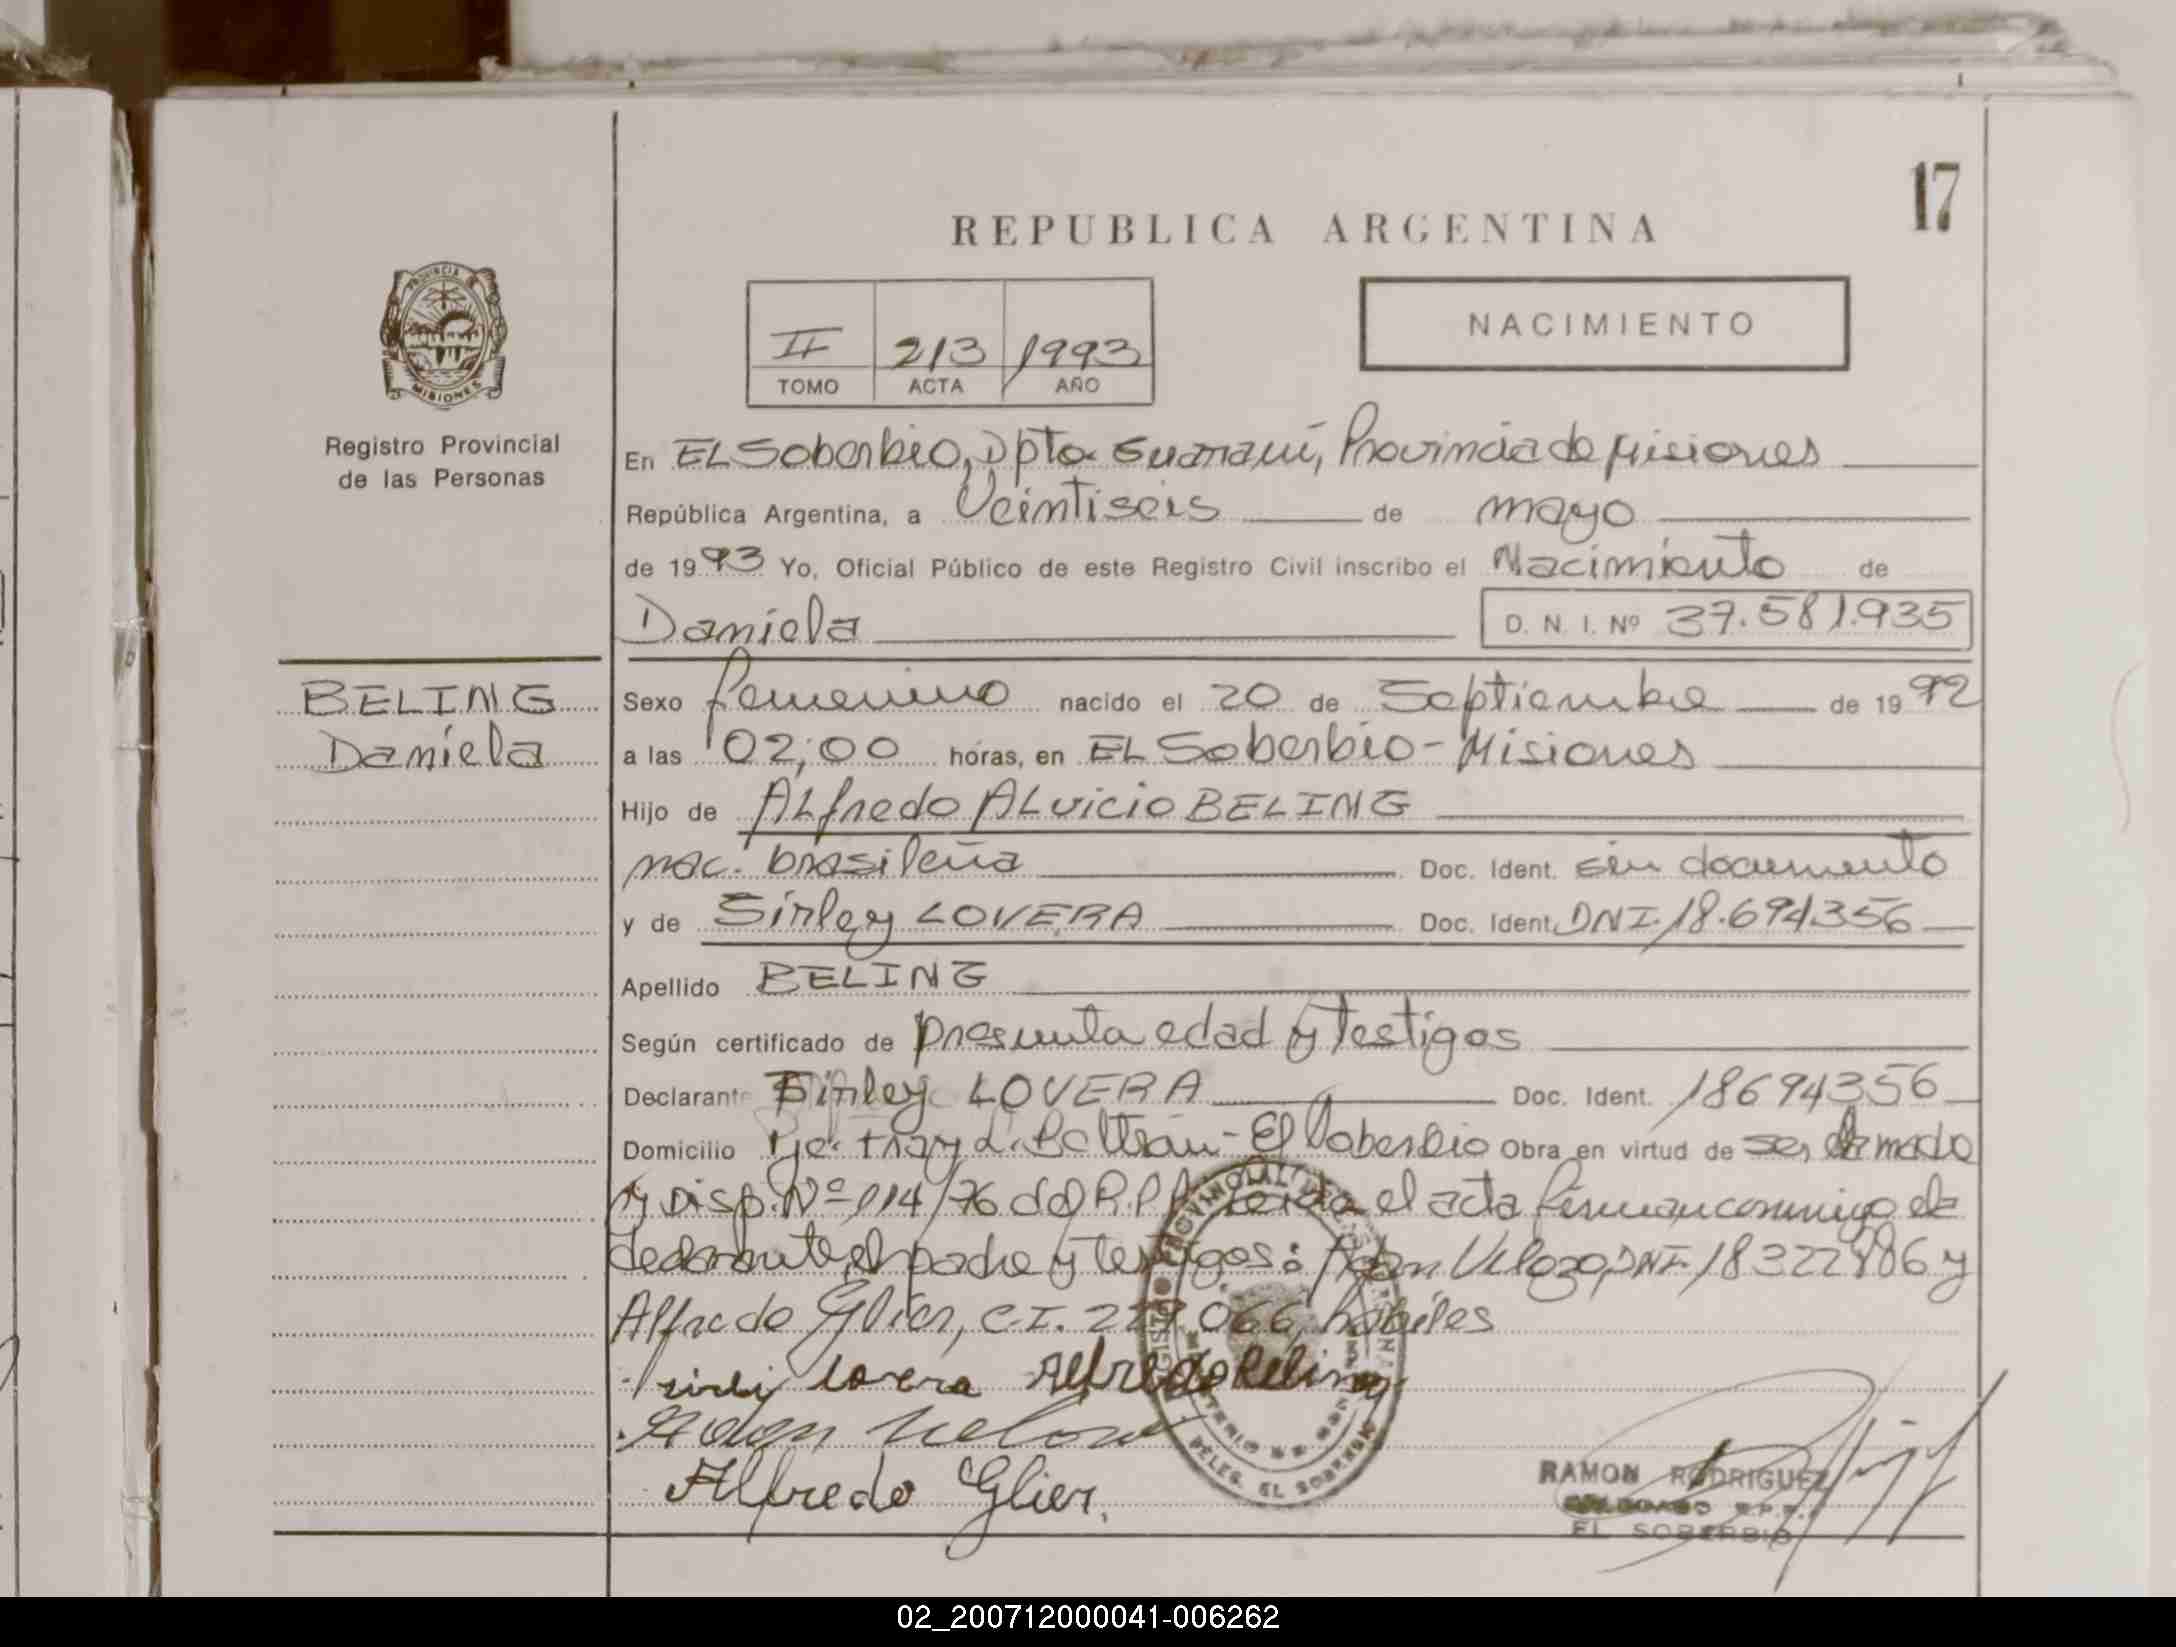 17
REPUBLICA ARGENTINA
PROVINCIA DE
MISIONES
Registro Provincial
de las Personas
II 213 1993
TOMO ACTA AÑO
NACIMIENTO
En EL Soberbio, Dpto. Guaraní, Provincia de Misiones
República Argentina, a Veintiseis de mayo
de 1993 Yo, Oficial Público de este Registro Civil inscribo el Nacimiento de
Daniela D. N. I. Nº 37.581.935
BELING
Daniela
Sexo femenino nacido el 20 de Septiembre de 1992
a las 02,00 horas, en EL Soberbio - Misiones
Hijo de ALfredo ALvicio BELING
nac. brasileña Doc. Ident. sin documento
y de Sirley LOVERA Doc. Ident. DNI. 18.694356
Apellido BELING
Según certificado de presunta edad y testigos
Declarante Sirley LOVERA Doc. Ident. 18694356
Domicilio Fray L. Beltrán - El Soberbio Obra en virtud de ser la madre
y Disp. Nº 114/76 del R.P.P. Leida el acta firman conmigo la
declarante, el padre y testigos: Adan Velozo, DNI. 18322886 y
Alfredo Glier, C.I. 227.066, hábiles
sirli lovera Alfredo Beling
Adan Velozo
Alfredo Glier.
RAMON RODRIGUEZ
EL SOBERBIO
02_200712000041-006262